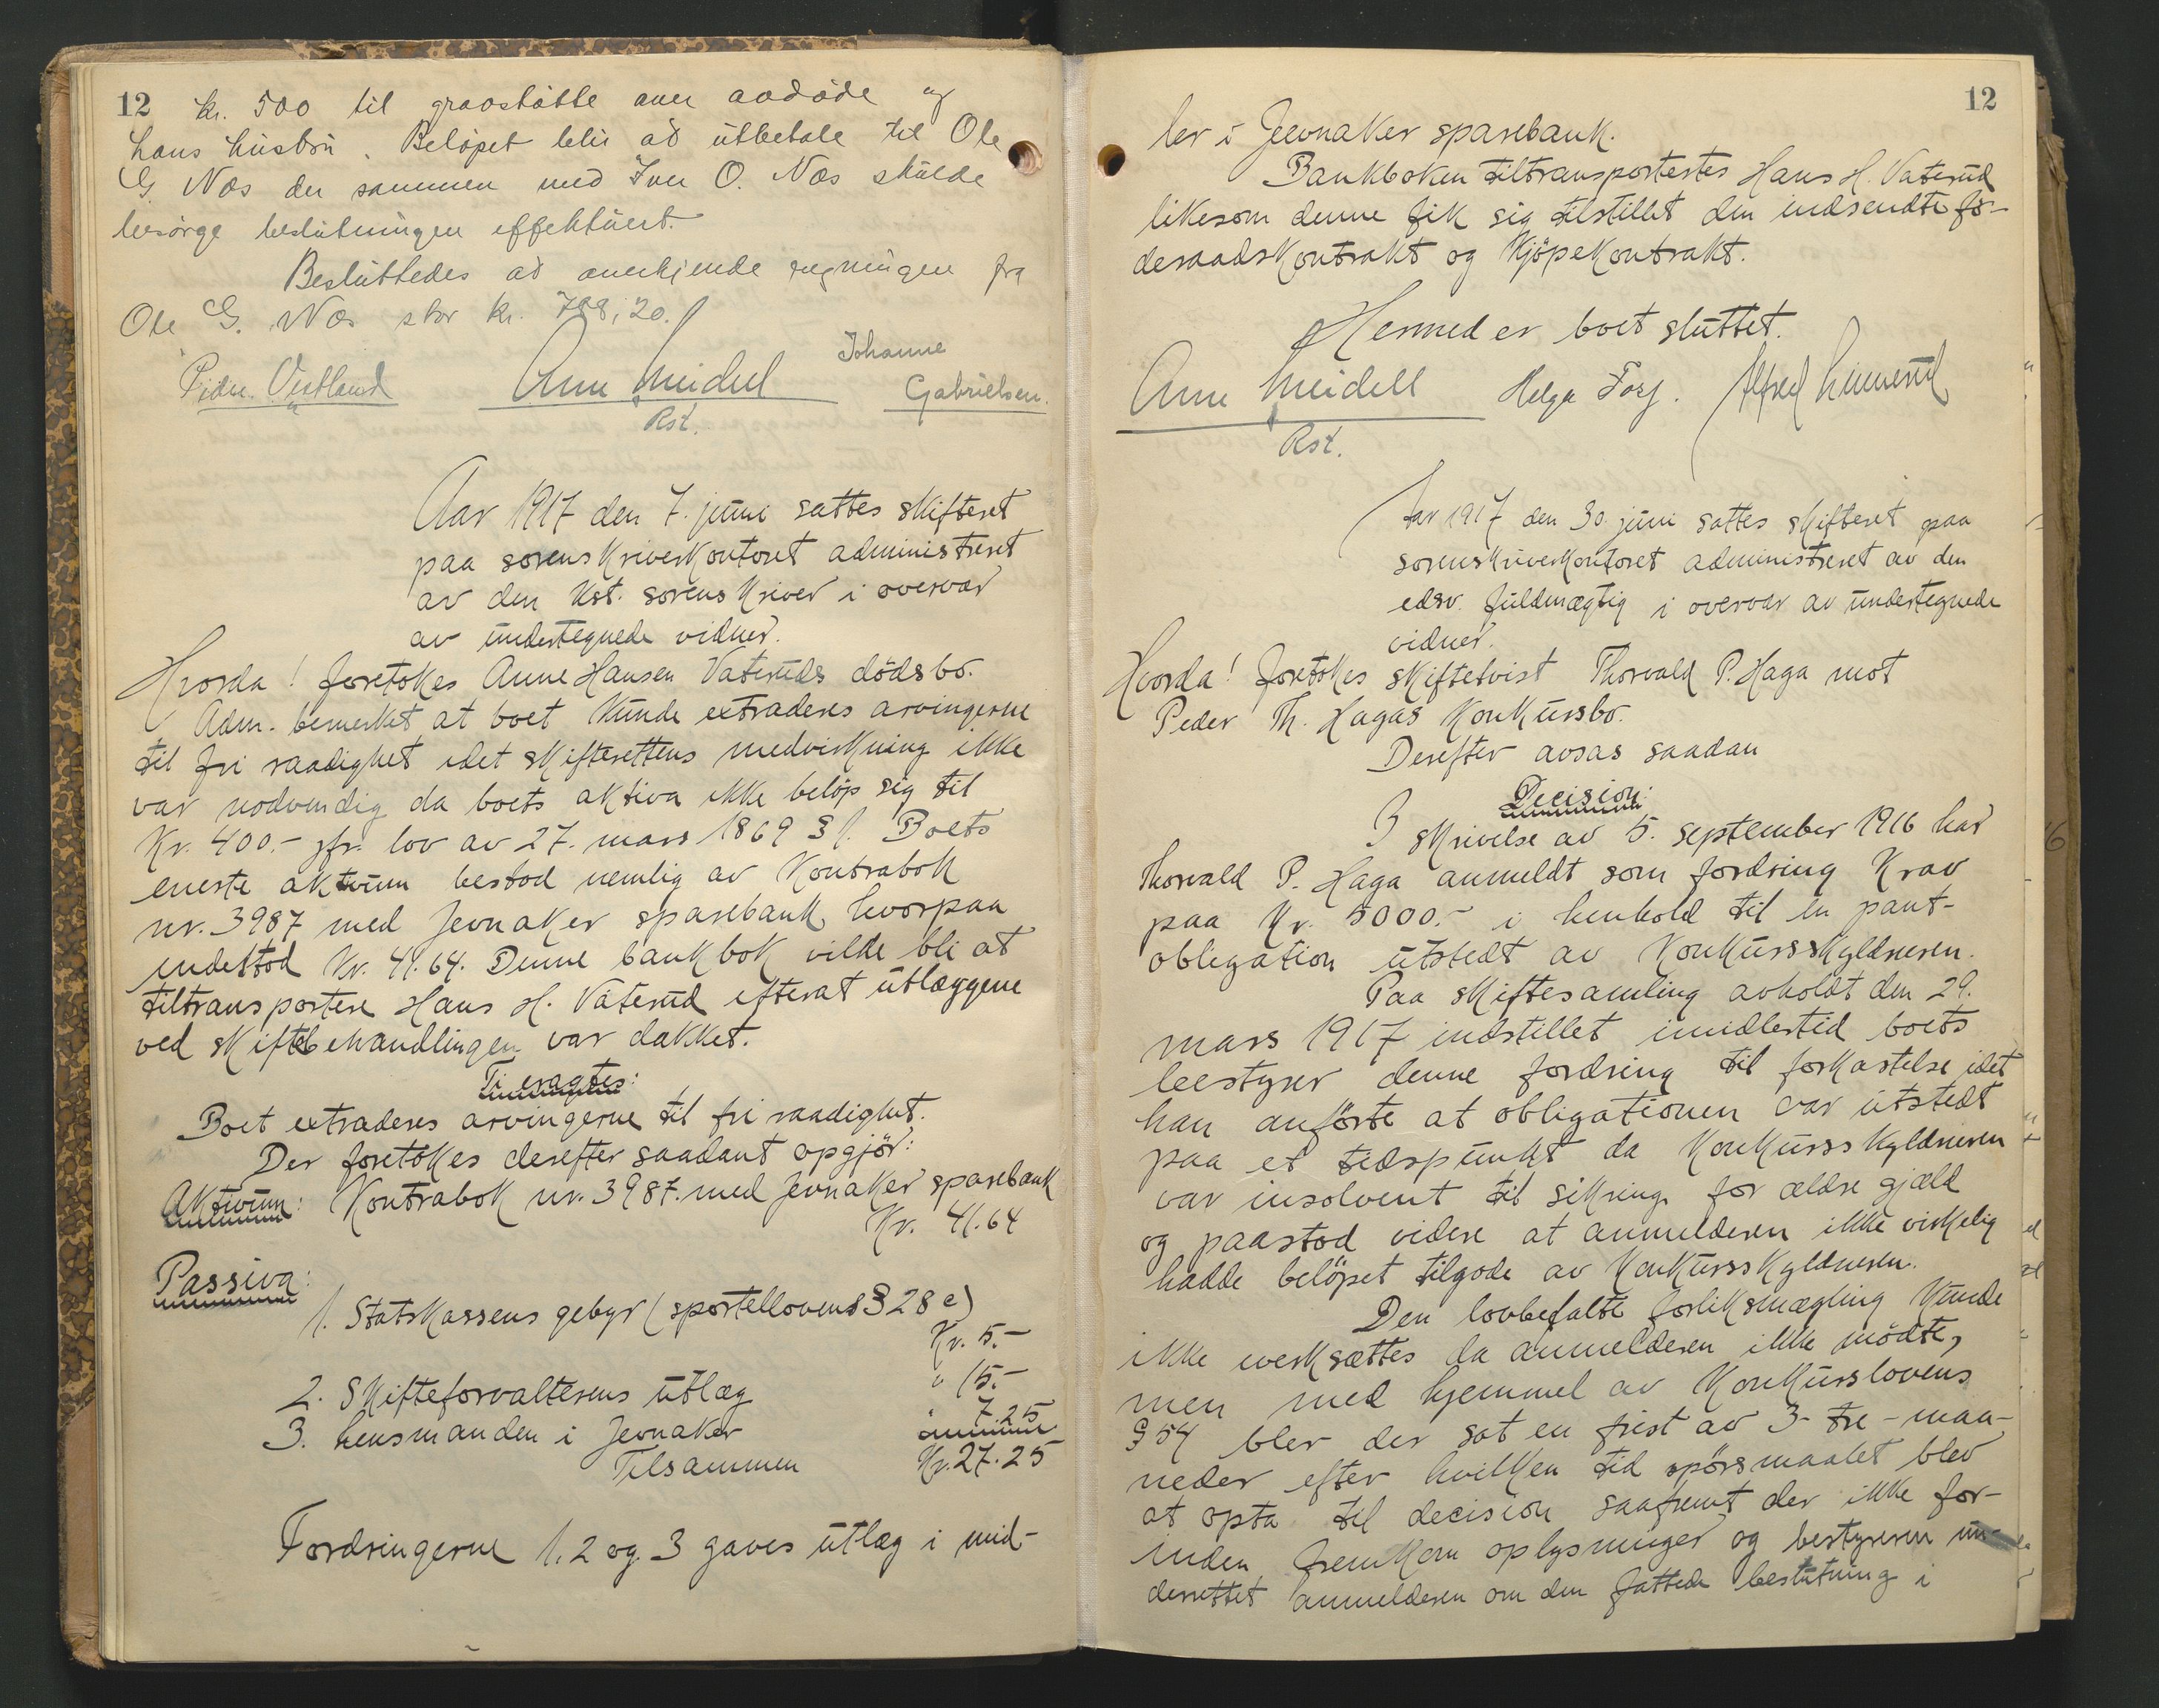 12 kr. 500 til gravstötte over avdöde og
hans hustru. Belöpet blir at utbetale til Ole
G. Næs der sammen med Iver O. Næs skulde
besörge beslutningen effektuert.
Besluttedes at anerkjende regningen fra
Ole G. Næs stor kr. 788,20.
Vestland Arne Meidell Johanne
Rst. Gabrielsen.
Aar 1917 den 7. juni sattes skifteret
paa sorenskriverkontoret administreret
av den kst. sorenskriver i overvær
av undertegnede vidner.
Hvorda! foretokes Anne Hansen Vateruds dödsbo.
Adm. bemerket at boet kunde extraderes arvingerne
til fri raadighet idet skifterettens medvirkning ikke
var nödvendig da boets aktiva ikke belöp sig til
Kr. 400.- jfr. lov av 27. mars 1869 § 1. Boets
eneste aktivum bestod nemlig av Kontrabok
nr. 3987 med Jevnaker sparebank hvorpaa
indestod Kr. 41.64. Denne bankbok vilde bli at
tiltransportere Hans H. Vaterud efterat utlæggene
ved skiftebehandlingen var dækket.
Ti eragtes:
Boet extraderes arvingerne til fri raadighet.
Der foretokes derefter saadant opgjör:
Aktivum: Kontrabok nr. 3987. med Jevnaker sparebank
Kr. 41.64
Passiva:
1. Statskassens gebyr (sportellovens § 28 c)
Kr. 5.-
2. Skifteforvalterens utlæg " 15.-
3. Lensmanden i Jevnaker " 7.25
Tilsammen Kr. 27.25
Fordringerne 1, 2 og 3 gaves utlæg i mid-
12
ler i Jevnaker sparebank.
Bankboken tiltransportertes Hans H. Vaterud
likesom denne fik sig tilstillet den indsendte fö-
deraadskontrakt og kjöpekontrakt.
Hermed er boet sluttet.
Arne Meidell Helga Alfred
Rst.
Aar 1917 den 30 juni sattes skifteret paa
sorenskriverkontoret administreret av den
edsv. fuldmægtig i overvær av undertegnede
vidner.
Hvorda! foretokes skiftetvist Thorvald P. Haga mot
Peder Th. Hagas Konkursbo.
Derefter avsas saadan
Decision:
I skrivelse av 5. september 1916 har
Thorvald P. Haga anmeldt som fordring Krav
paa Kr. 5000.- i henhold til en pant-
obligation utstedt av Konkursskyldneren.
Paa skiftesamling avholdt den 29.
mars 1917 indstillet imidlertid boets
bestyrer denne fordring til forkastelse idet
han anförte at obligationen var utstedt
paa et tidspunkt da Konkursskyldneren
var insolvent til sikring for ældre gjæld
og paastod videre at anmelderen ikke virkelig
hadde belöpet tilgode av Konkursskyldneren.
Den lovbefalte forliksmægling kunde
ikke iverksættes da anmelderen ikke mödte,
men med hjemmel av Konkurslovens
§ 54 blev der sat en frist av 3 - tre - maa-
neder efter hvilken tid spörsmaalet blev
at opta til decision saafremt der ikke for-
inden fremkom oplysninger og bestyreren un-
derrettet anmelderen om den fattede beslutning i